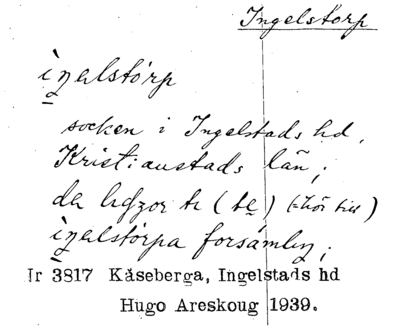 Ingelstorp
ịŋəlstórp
socken i Ingelstads hd,
Kristianstads län;
de (te) (= hör till)
församling;
Ir 3817 Kåseberga, Ingelstads hd
Hugo Areskoug 1939.